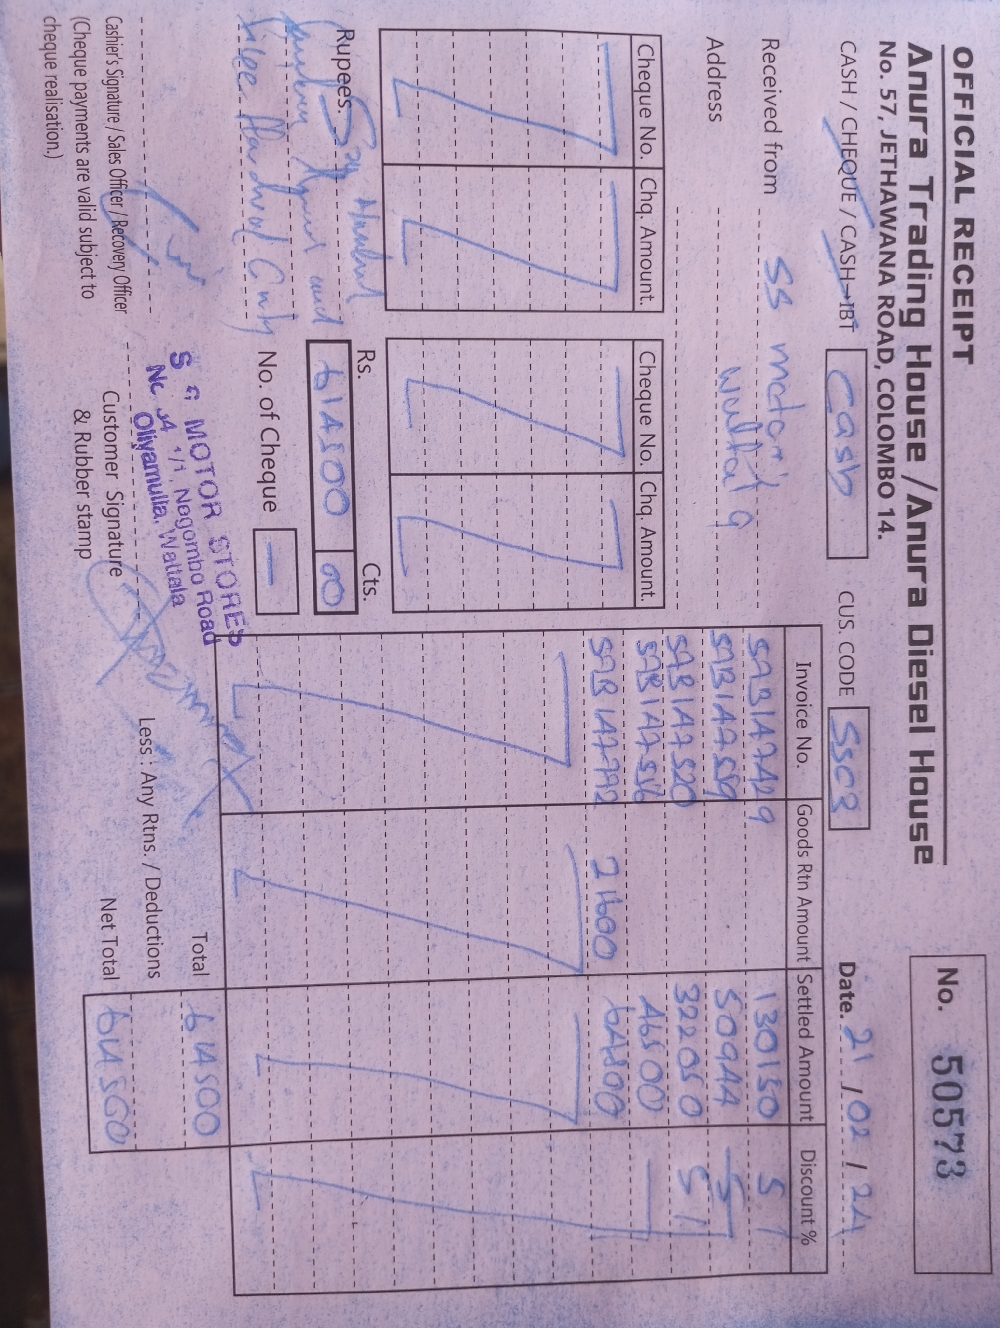 OFFICIAL RECEIPT
Anura Trading House / Anura Diesel House
No. 57, JETHAWANA ROAD, COLOMBO 14.
No. 50573
CASH / CHEQUE / CASH-IBT Cash CUS. CODE SSC8 Date. 21 / 02 / 24
Received from SS motor's
Address Wattala
Cheque No. Chq. Amount. Cheque No. Chq. Amount.
Invoice No. Goods Rtn Amount Settled Amount Discount %
SAB147429 130150 5
SAB147559 50944 5
SAB147520 322050 5
SAB147556 46500 —
SAB147792 21600 64800
Rs. Cts.
Rupees. Six Hundred
and
Five Hundred Only
614500 00
No. of Cheque —
Total 614500
Less : Any Rtns. / Deductions
Net Total 614500
S S MOTOR STORES
Negombo Road
Oliyamulla, Wattala
Cashier's Signature / Sales Officer / Recovery Officer
(Cheque payments are valid subject to
cheque realisation.)
Customer Signature
& Rubber stamp